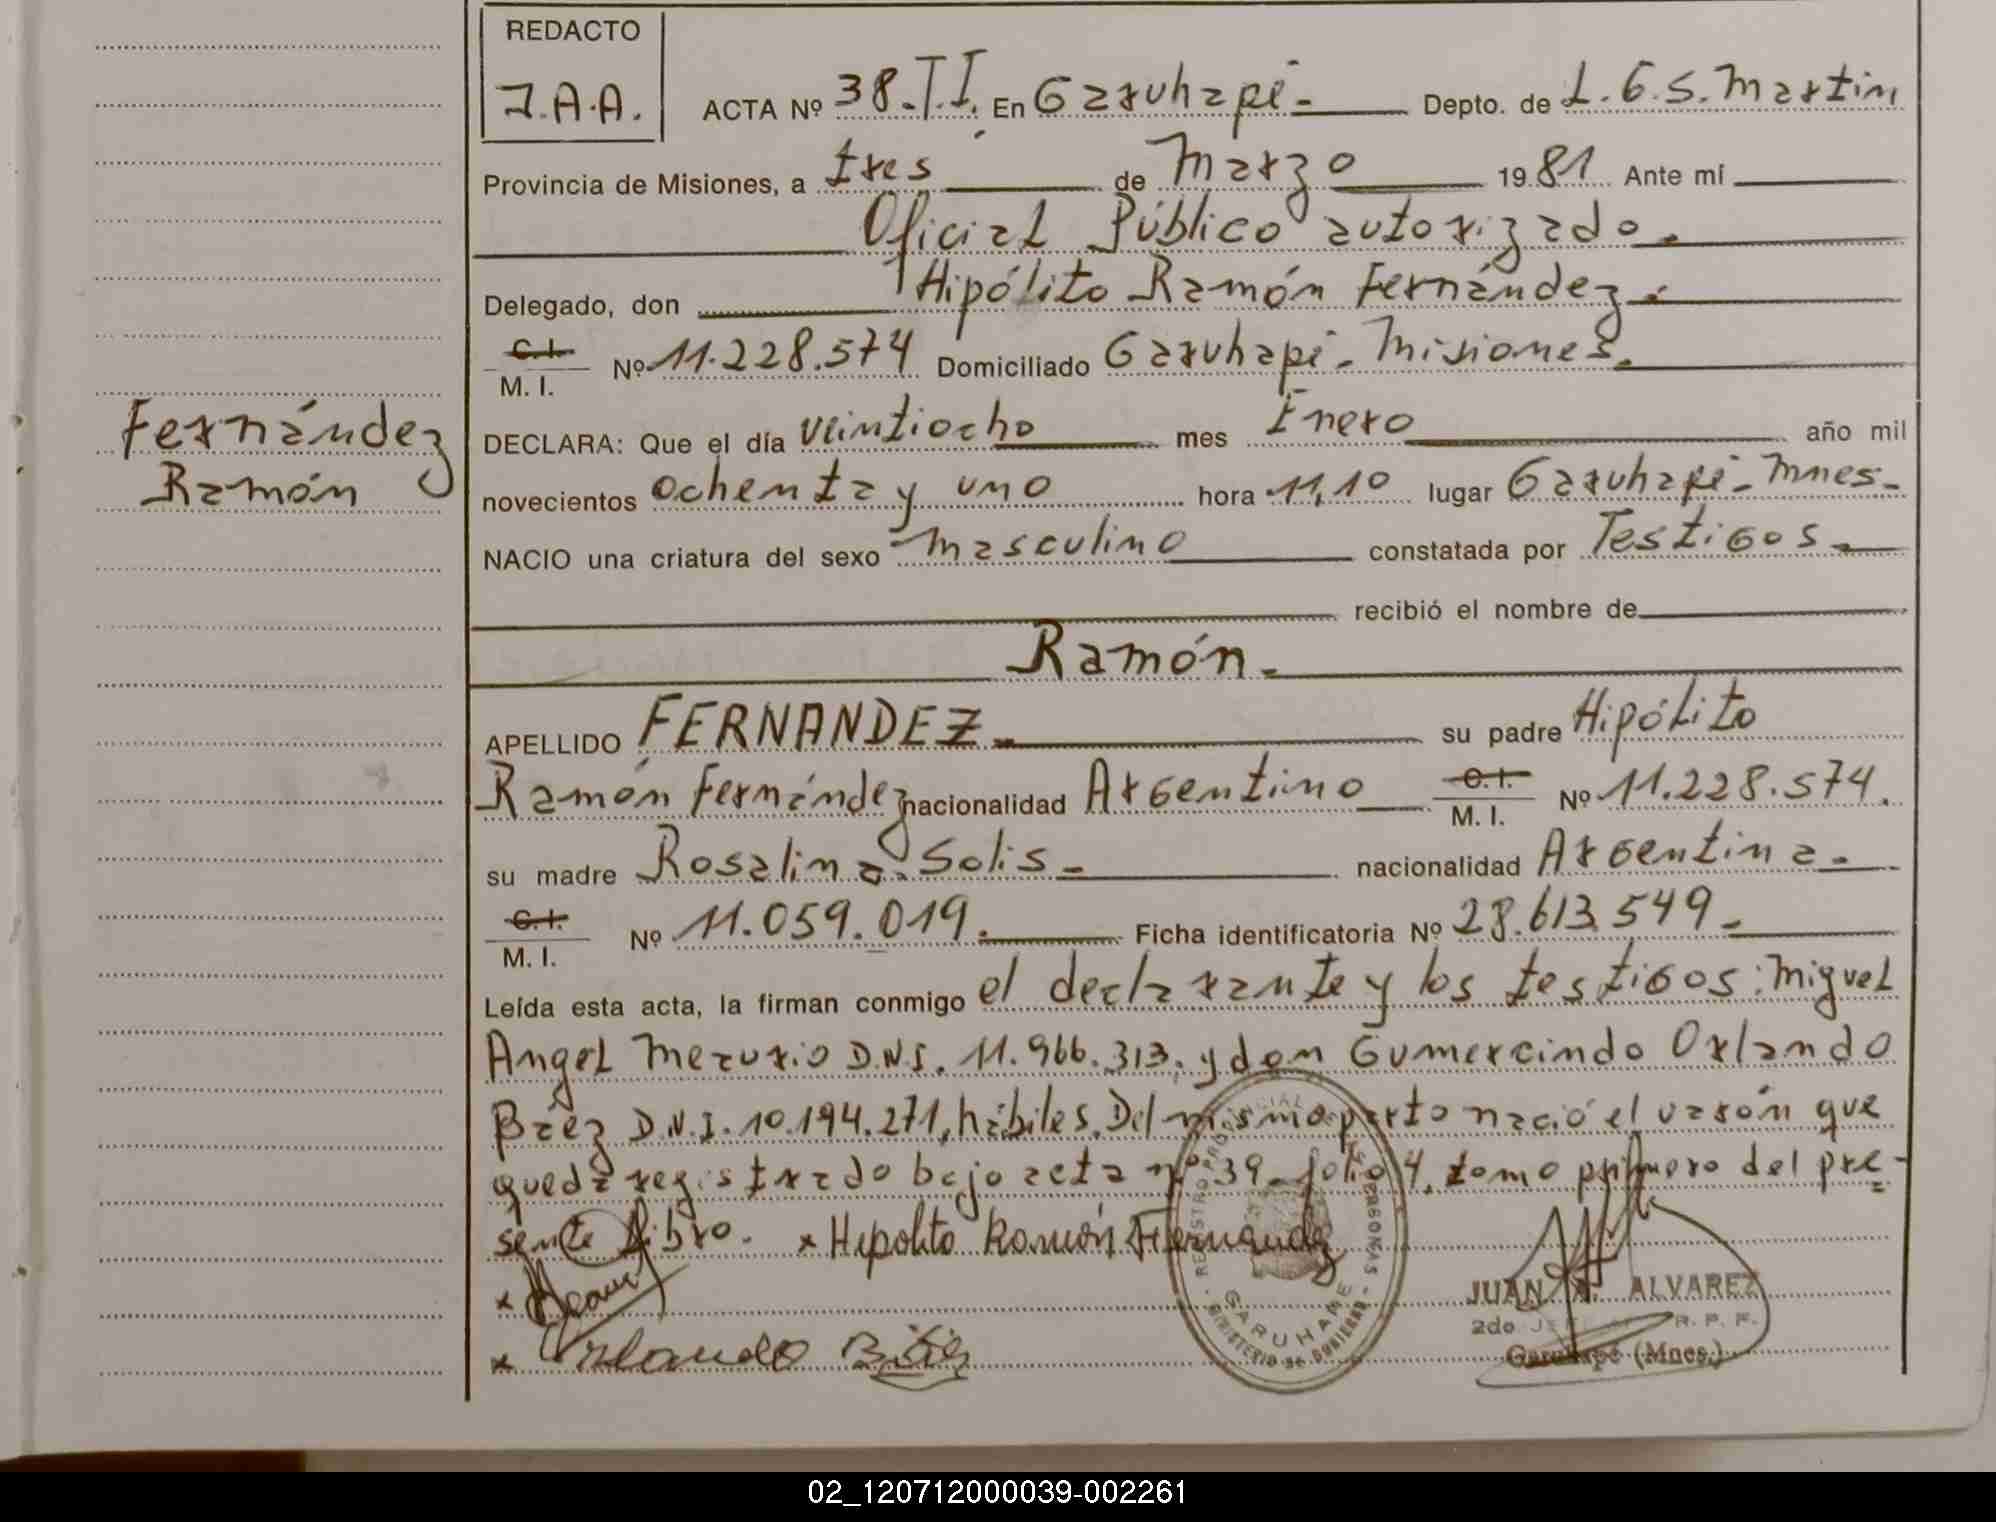 REDACTO
J.A.A.
ACTA Nº 38.T.I. En Garuhapé- Depto. de L.G.S. Martin
Provincia de Misiones, a tres de Marzo 1981 Ante mí
Oficial Público autorizado.
Delegado, don Hipólito Ramón Fernández.
C.I. M. I. Nº 11.228.574 Domiciliado Garuhapé- Misiones.
Fernández
Ramón
DECLARA: Que el día veintiocho mes Enero año mil
novecientos ochenta y uno hora 11,10 lugar Garuhapé- Mnes.-
NACIO una criatura del sexo masculino constatada por Testigos.
recibió el nombre de
Ramón.
APELLIDO FERNANDEZ su padre Hipólito
Ramón Fernández nacionalidad Argentino C.I. M. I. Nº 11.228.574.
su madre Rosalina Solis nacionalidad Argentina.
C.I. M. I. Nº 11.059.019. Ficha identificatoria Nº 28.613.549.
Leída esta acta, la firman conmigo el declarante y los testigos: Miguel
Angel Mereurio D.N.I. 11.966.313, y don Gumercindo Orlando
Báez D.N.I. 10.194.271, hábiles. Del mismo parto nació el varón que
queda registrado bajo acta nº 39 folio 4, tomo primero del pre-
sente libro. x Hipolito Ramón Fernandez
x
x Orlando Báez
REGISTRO PROVINCIAL DE LAS PERSONAS
GARUHAPE
MINISTERIO DE GOBIERNO
JUAN A. ALVAREZ
2do R. P. P.
Garuhapé (Mnes.)
02_120712000039-002261